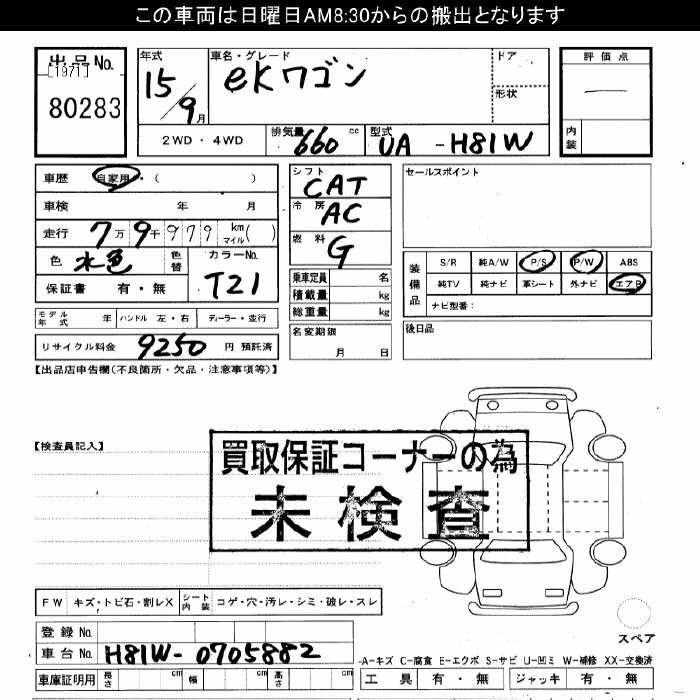 この車両は日曜日AM8:30からの搬出となります
出品No.
[1971]
80283
年式
15/9月
車名・グレード
eKワゴン
ドア
形状
評価点
―
内装
2WD・4WD
排気量 660 cc
型式 UA -H81W
車歴 自家用・( )
車検 年 月
走行 7万9千979 km マイル( )
色 水色 色替
カラーNo. T21
保証書 有・無
モデル年式 年
ハンドル 左・右
ディーラー・並行
リサイクル料金 9250 円 預託済
シフト CAT
冷房 AC
燃料 G
乗車定員 名
積載量 kg
総重量 kg
名変期限
月 日
セールスポイント
装備品
S/R 純A/W P/S P/W ABS
純TV 純ナビ 革シート 外ナビ エアB
ナビ型番:
後日品
【出品店申告欄(不良箇所・欠品・注意事項等)】
【検査員記入】
買取保証コーナーの為
未検査
FW キズ・トビ石・割レX
シート内装 コゲ・穴・汚レ・シミ・破レ・スレ
スペア
登録No.
車台No. H81W-0705882
車庫証明用 長さ cm 幅 cm 高さ cm
-A-キズ C-腐食 E-エクボ S-サビ U-凹ミ W-補修 XX-交換済
工具 有・無 ジャッキ 有・無